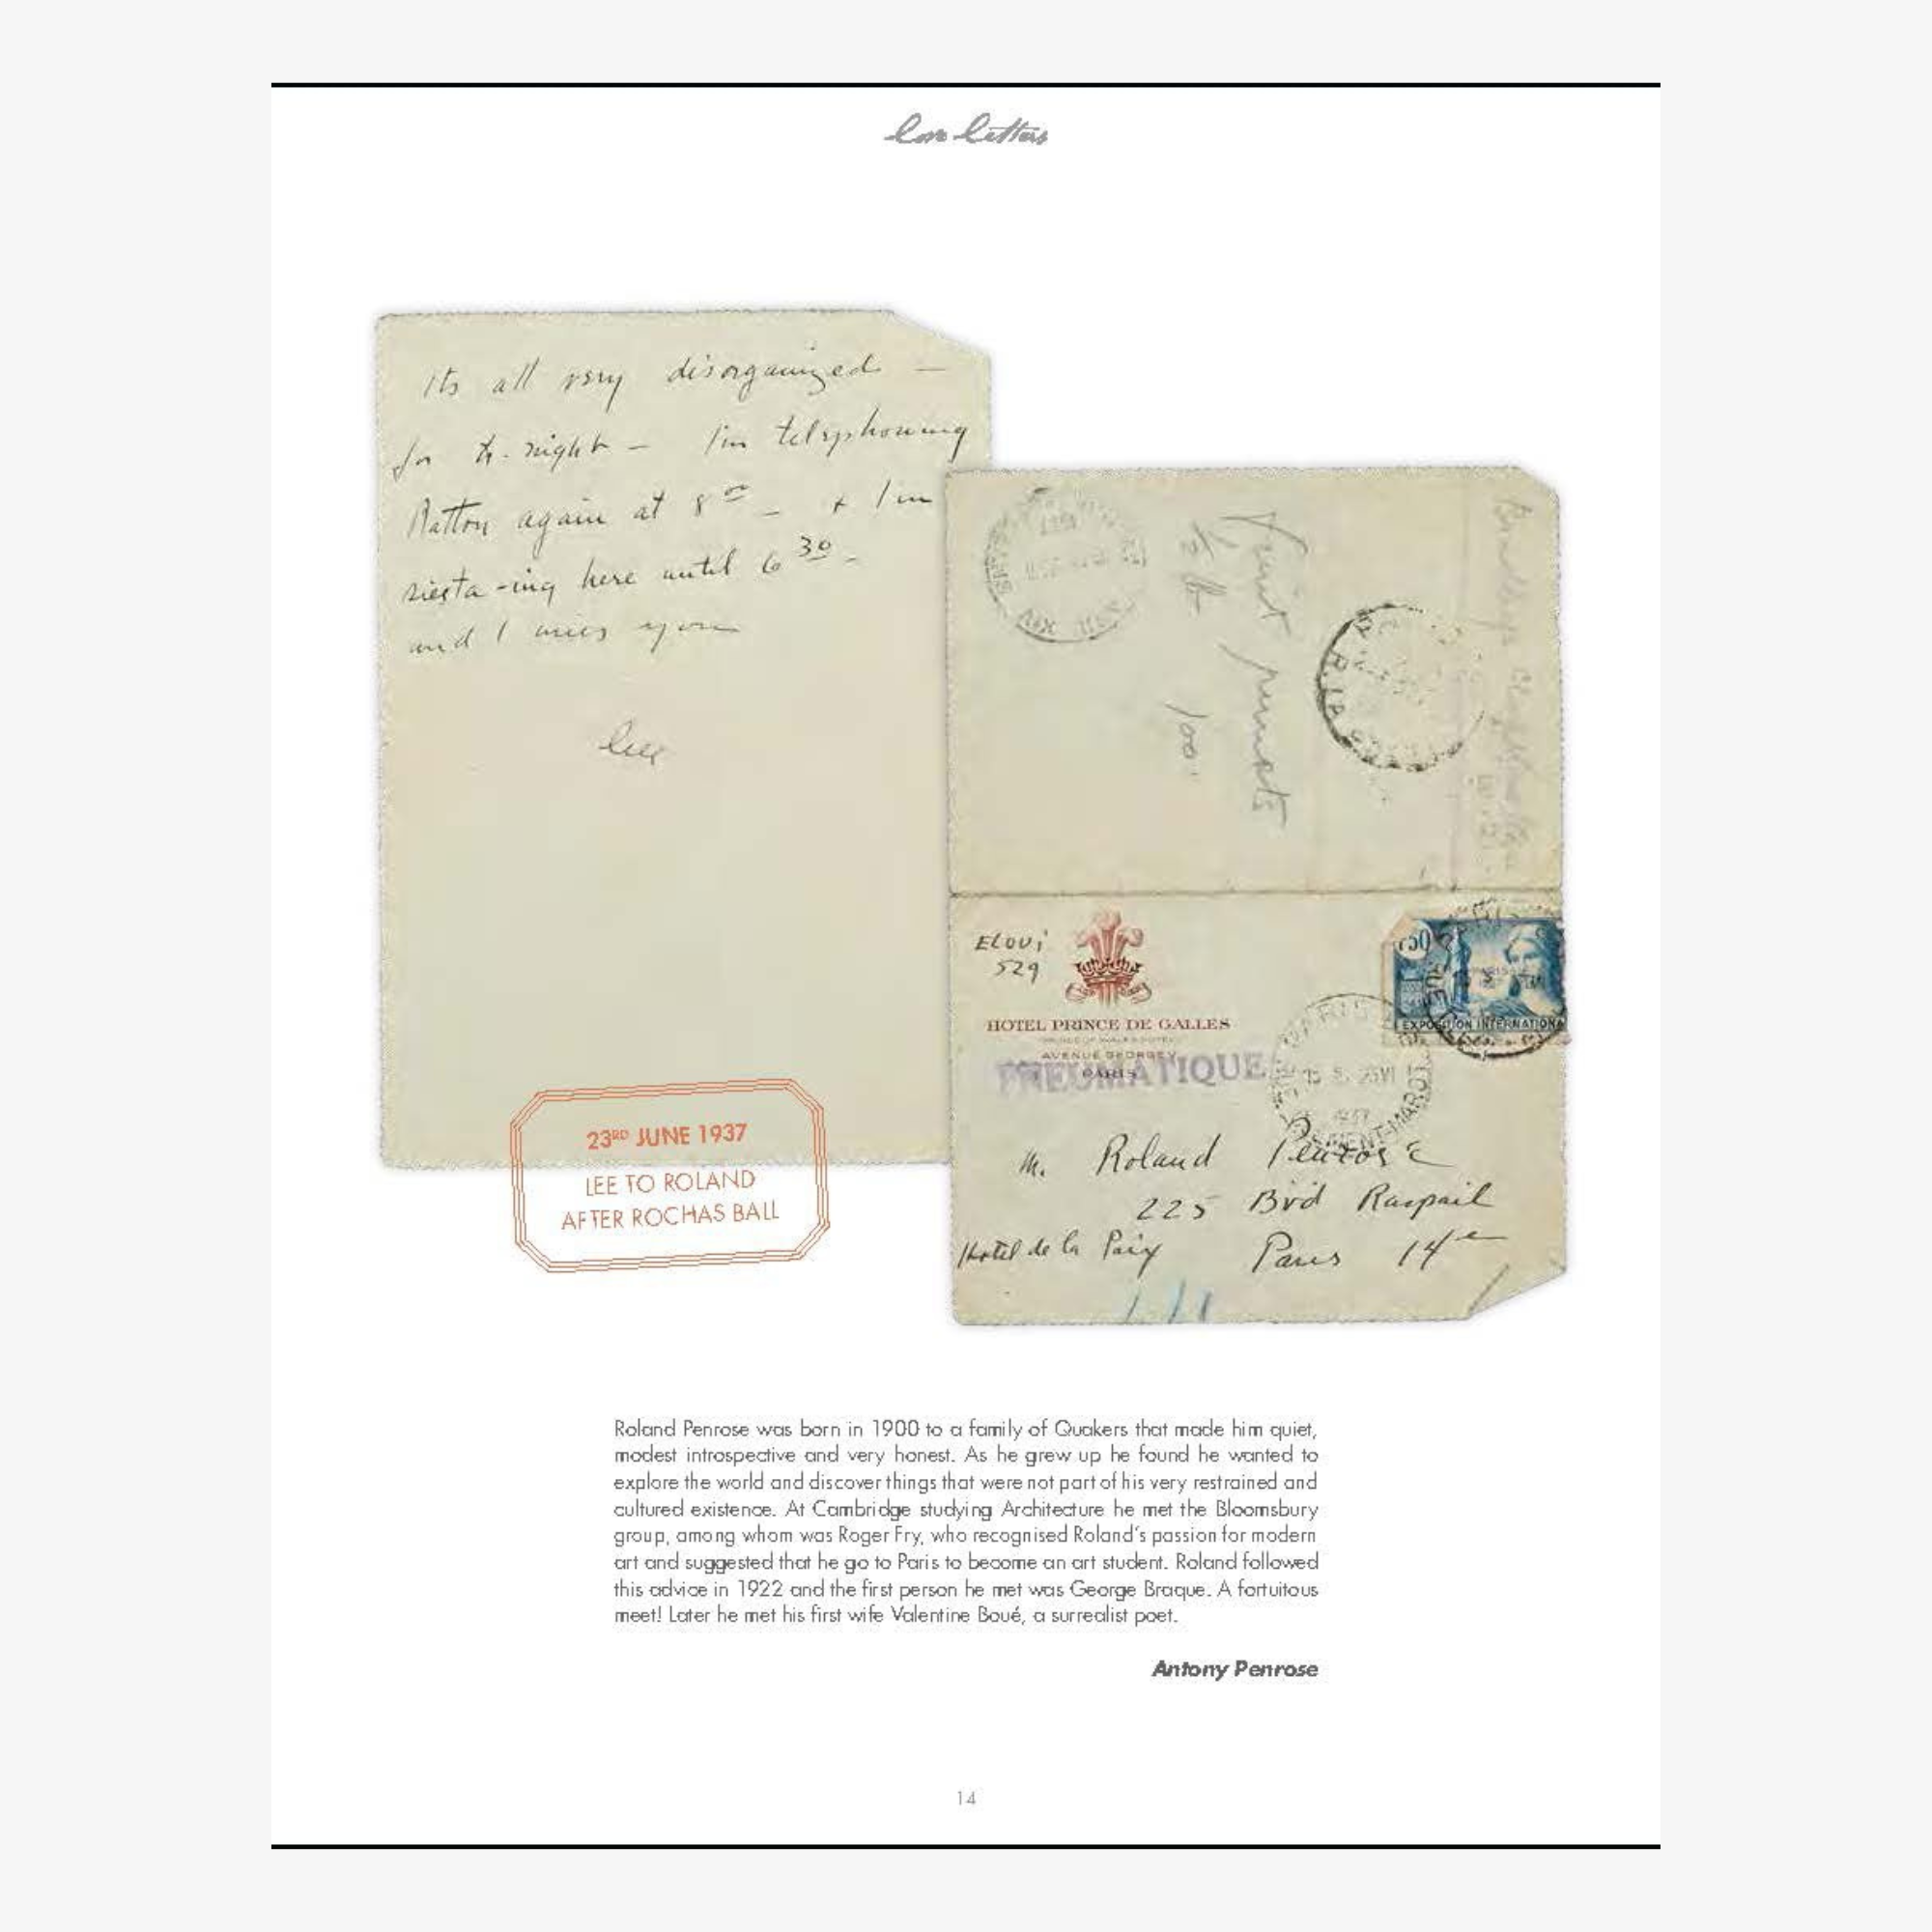 love letters
Its all very disorganized —
for to-night — I'm telephoning
Ratton again at 8 00 — + I'm
siesta-ing here until 6 30 -
and I miss you
Lee
1/2 lb
100
Eloui
529
HOTEL PRINCE DE GALLES
AVENUE GEORGE V
PARIS
PNEUMATIQUE
50
EXPOSITION INTERNATIONA
PARIS
M. Roland Penrose
225 Bvd Raspail
Hotel de la Paix Paris 14e
23RD JUNE 1937
LEE TO ROLAND
AFTER ROCHAS BALL
Roland Penrose was born in 1900 to a family of Quakers that made him quiet,
modest introspective and very honest. As he grew up he found he wanted to
explore the world and discover things that were not part of his very restrained and
cultured existence. At Cambridge studying Architecture he met the Bloomsbury
group, among whom was Roger Fry, who recognised Roland's passion for modern
art and suggested that he go to Paris to become an art student. Roland followed
this advice in 1922 and the first person he met was George Braque. A fortuitous
meet! Later he met his first wife Valentine Boué, a surrealist poet.
Antony Penrose
14